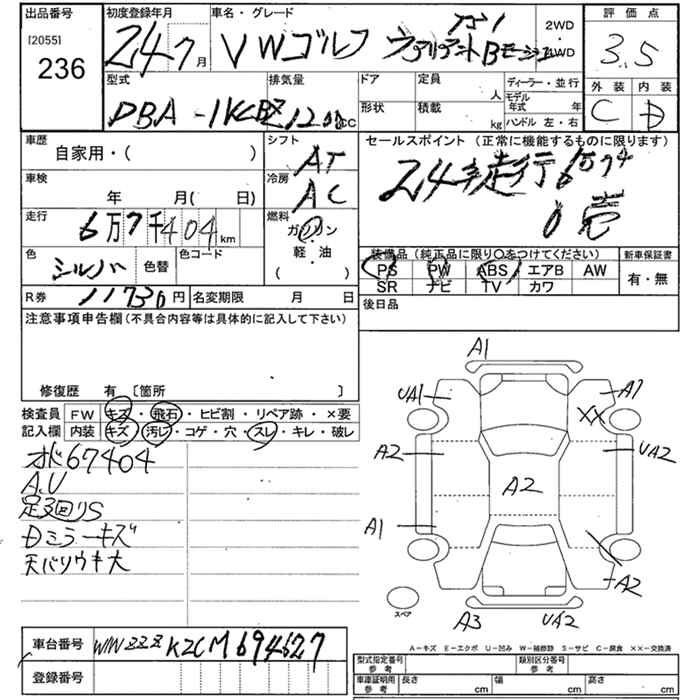 出品番号
[2055]
236
初度登録年月
24 7月
車名・グレード
VWゴルフ ヴァリアント
2WD
・
4WD
評価点
3.5
外装 内装
C D
型式
DBA-1KCBZ
排気量
1200cc
ドア
形状
定員
人
積載
kg
ディーラー・並行
モデル年式 年
ハンドル 左・右
車歴
自家用・( )
シフト
AT
車検
年 月( 日)
冷房
AC
走行
6万7千404km
燃料
ガソリン
・
軽・油
( )
色
シルバー
色替
色コード
R券
11730円
名変期限 月 日
セールスポイント(正常に機能するものに限ります)
24年走行6万7千
装備品(純正品に限り○をつけてください)
PS PW ABS エアB AW
SR ナビ TV カワ
新車保証書
有・無
後日品
注意事項申告欄(不具合内容等は具体的に記入して下さい)
修復歴 有 〔箇所 〕
検査員記入欄
FW キズ・飛石・ヒビ割・リペア跡・×要
内装 キズ・汚レ・コゲ・穴・スレ・キレ・破レ
オド67404
A.U
足3回りS
Dミラーキズ
天バリウキ大
A1
UA1
A1
XX
A2
UA2
A2
A1
A2
スペア
A3
UA2
車台番号
WVWZZZ1KZCM694627
登録番号
A-キズ E-エクボ U-凹み W-補修跡 S-サビ C-腐食 XX-交換済
型式指定番号
参考
類別区分番号
参考
車庫証明用
参考
長さ cm
幅 cm
高さ cm